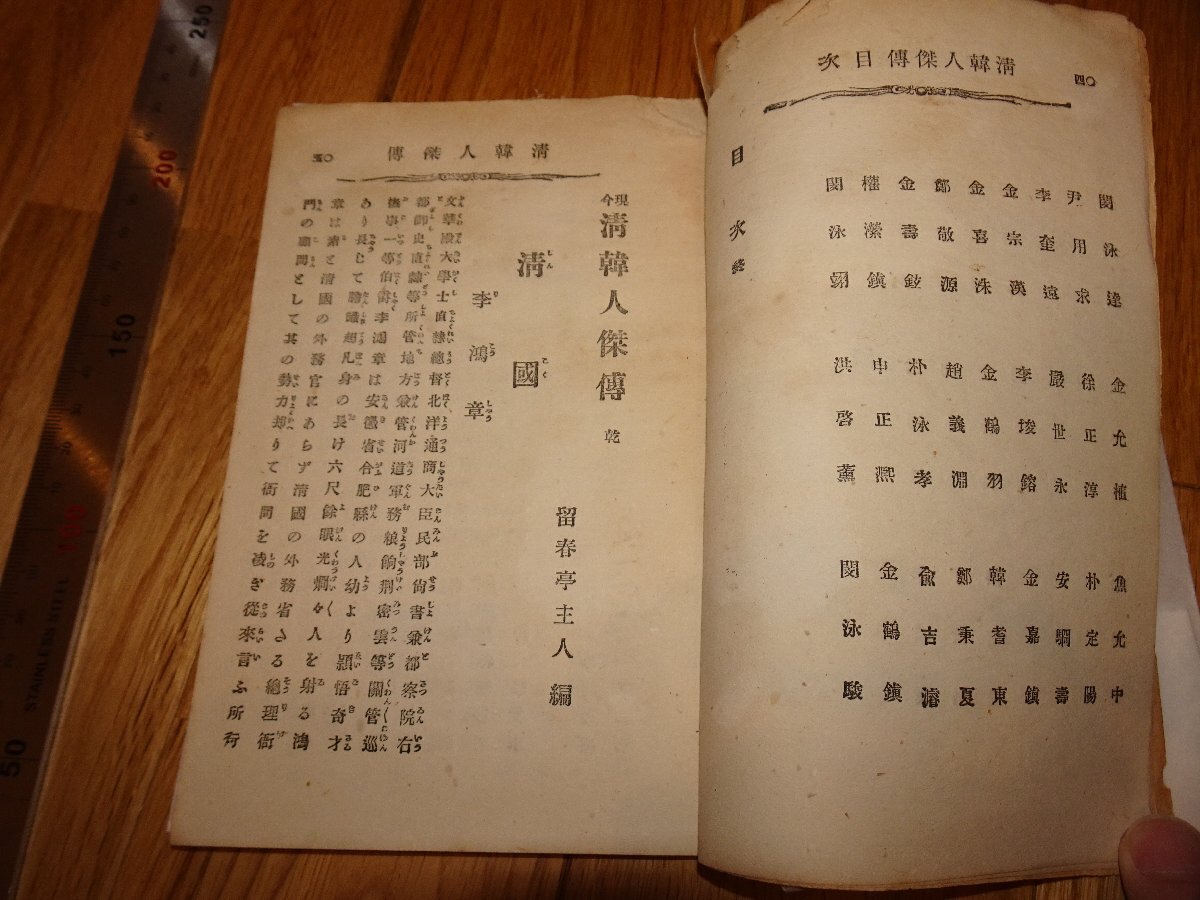 清韓人傑傳目次
四〇
閔泳達 金允植 魚允中
尹用求 徐正淳 朴定陽
李奎遠 嚴世永 安駉壽
金宗漢 李埈鎔 金嘉鎭
金喜洙 金鶴羽 韓耆東
鄭敬源 趙義淵 鄭秉夏
金壽鉉 朴泳孝 兪吉濬
權瀠鎭 申正熙 金鶴鎭
閔泳翊 洪啓薰 閔泳駿
目次終
清韓人傑傳
五〇
現今 清韓人傑傳 乾
留春亭主人編
清國
李鴻章
文華殿大學士直隷總督北洋通商大臣民部尚書兼都察院右
都御史直隷等所管地方兼管河道軍務粮餉刑密雲等關管巡
撫事一等伯爵李鴻章は安徽省合肥縣の人幼より頴悟奇才
あり長じて膽識超凡身の長け六尺餘眼光爛々人を射る鴻
章は素と清國の外務官にあらず清國の外務省さる總理衙
門の顧問として其の勢力却りて衙門を凌ぎ從來言ふ所行
250
200
150
100
50
STAINLESS STEEL